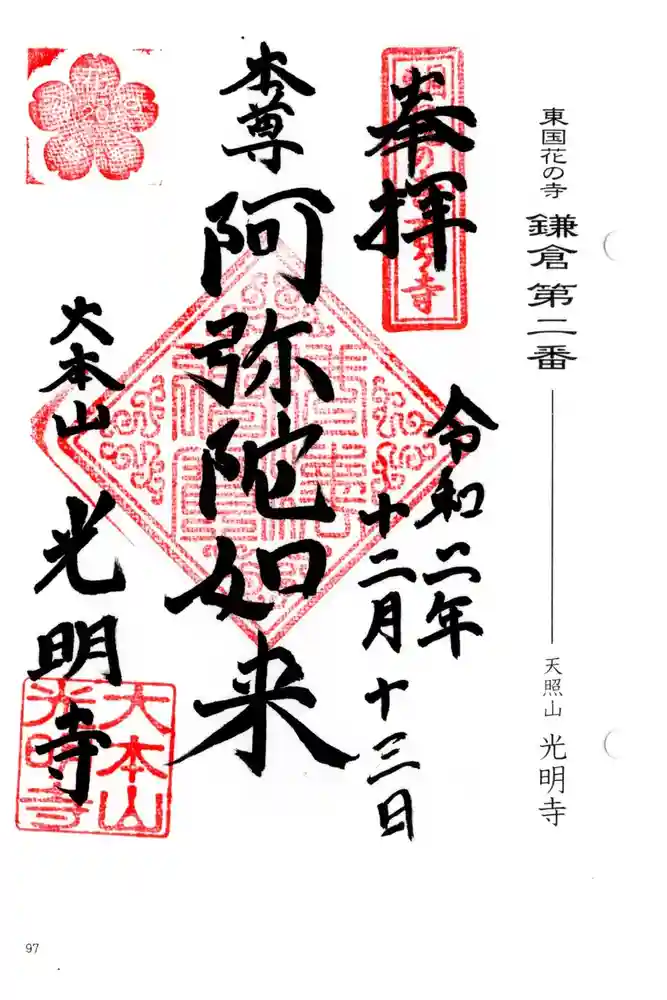 東国花の寺 鎌倉第二番 天照山 光明寺
奉拝
令和二年
十二月十三日
本尊 阿弥陀如来
大本山 光明寺
大本山
光明寺
97